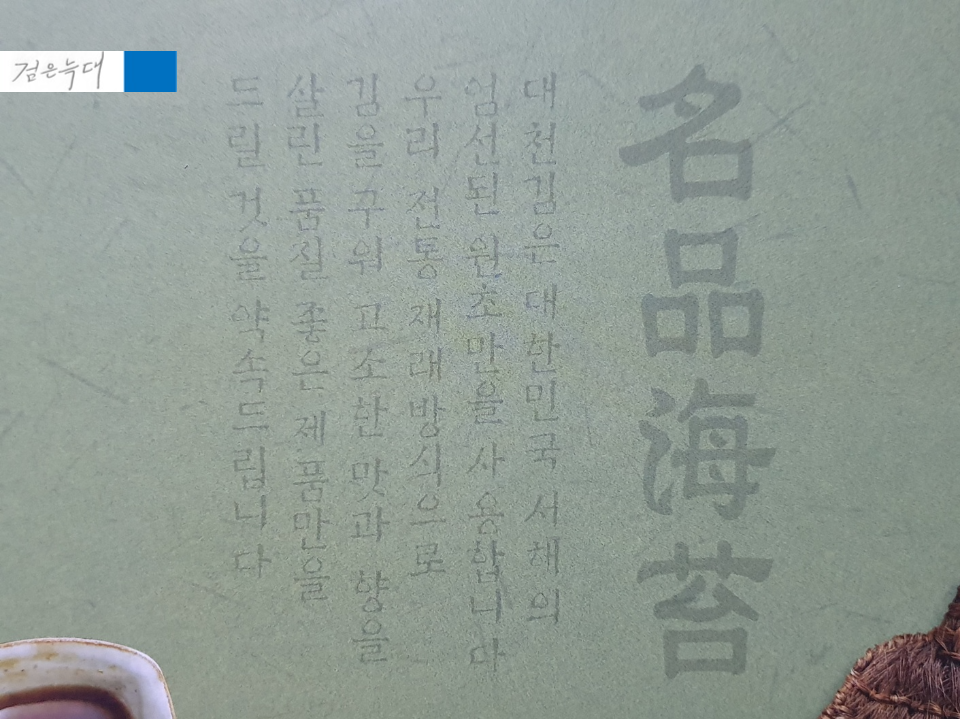 검은늑대
名品海苔
대천김은 대한민국 서해의
엄선된 원초만을 사용합니다
우리 전통 재래방식으로
김을 구워 고소한 맛과 향을
살린 품질 좋은 제품만을
드릴 것을 약속드립니다